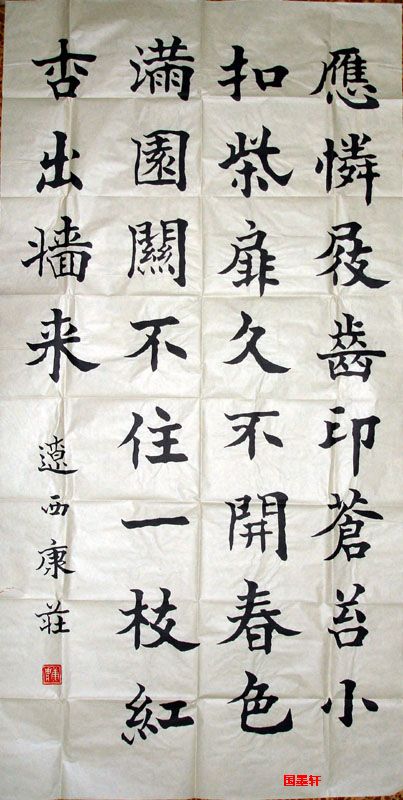 應憐屐齒印蒼苔小
扣柴扉久不開春色
滿園關不住一枝紅
杏出墙来
遼西康莊
国墨轩